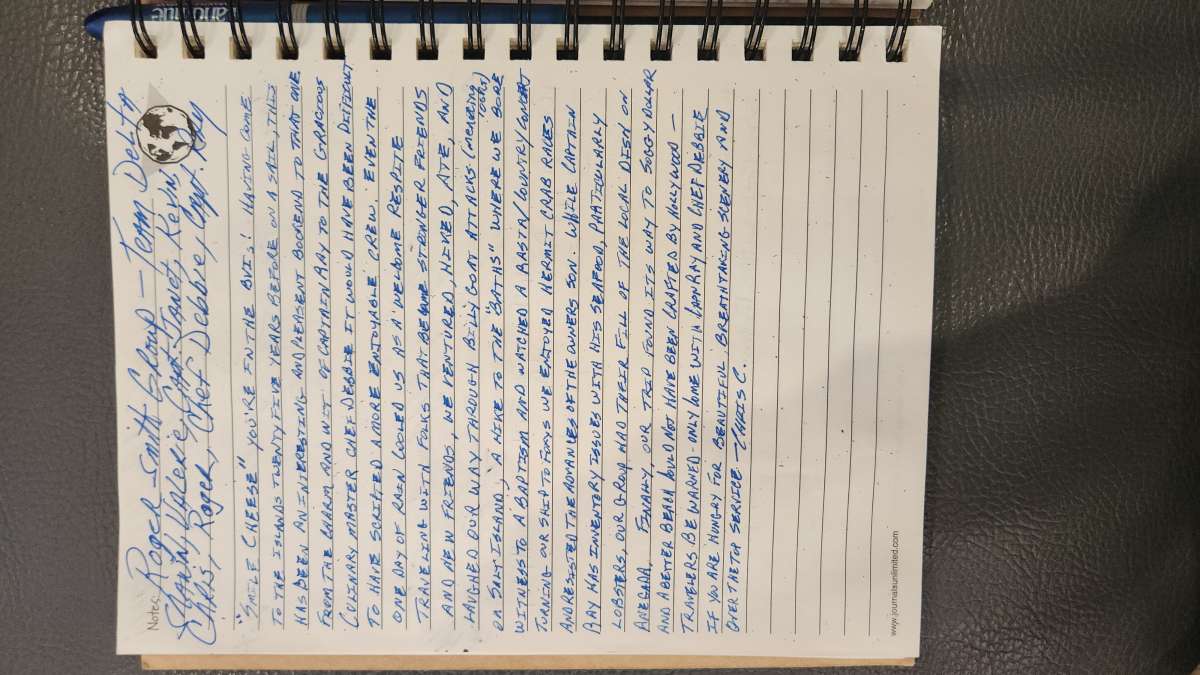 Notes:
Roger Smith Group — Team Debby
Stewart, Valerie, Capt Janet, Kevin,
Chris, Roger, Chef Debbie, Capt. Ray
"SMILE CHEESE" YOU'RE IN THE BVI! HAVING COME
TO THE ISLANDS TWENTY FIVE YEARS BEFORE ON A SAIL, THIS
HAS BEEN AN INTERESTING AND PLEASENT BOOKEND TO THAT ONE
FROM THE CHARM AND WIT OF CAPTAIN RAY TO THE GRACIOUS
CULINARY MASTER CHEF DEBBIE IT WOULD HAVE BEEN DIFFICULT
TO HAVE SCRIPTED A MORE ENJOYABLE CREW. EVEN THE
ONE DAY OF RAIN COOLED US AS A WELCOME RESPITE
TRAVELING WITH FOLKS THAT BECAME STRONGER FRIENDS
AND NEW FRIENDS, WE VENTURED, HIKED, ATE, AND
LAUGHED OUR WAY THROUGH BILLY GOAT ATTACKS (MENACING LOOKS)
ON SALT ISLAND, A HIKE TO THE "BATHS" WHERE WE BORE
WITNESS TO A BAPTISM AND WATCHED A RASTA/COUNTRY CONCERT
TURNING OUR SHIP TO FOXYS WE ENJOYED HERMIT CRAB RACES
AND RESISTED THE ADVANCES OF THE OWNERS SON. WHILE CAPTAIN
RAY HAS INVENTORY ISSUES WITH HIS SEAFOOD, PARTICULARLY
LOBSTERS, OUR GROUP HAD THEIR FILL OF THE LOCAL DISH ON
ANEGADA. FINALLY, OUR TRIP FOUND ITS WAY TO SOGGY DOLLAR
AND A BETTER BEACH COULD NOT HAVE BEEN CRAFTED BY HOLLYWOOD —
TRAVELERS BE WARNED - ONLY COME WITH CAPN RAY AND CHEF DEBBIE
IF YOU ARE HUNGRY FOR BEAUTIFUL, BREATHTAKING SCENERY AND
OVER THE TOP SERVICE - CHRIS C.
www.journalsunlimited.com